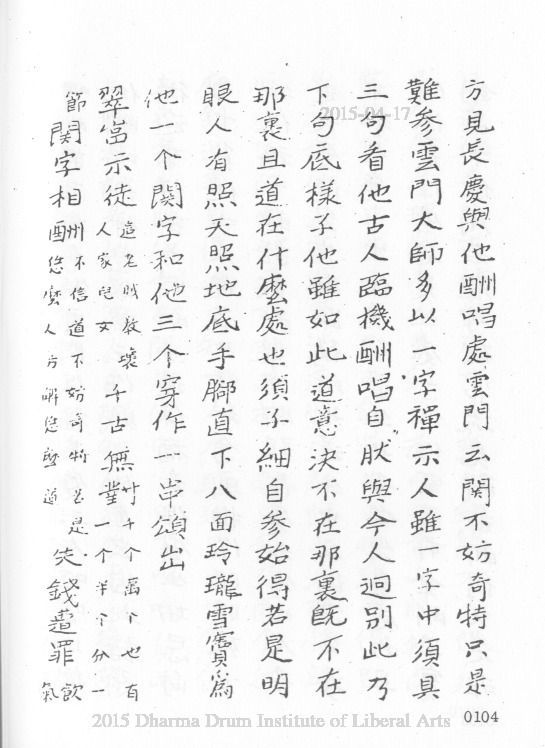 方見長慶與他酬唱處雲門云関不妨奇特只是
難参雲門大師多以一字禪示人雖一字中須具
三句看他古人臨機酬唱自肰與今人迥别此乃
下句底樣子他雖如此道意決不在那裏既不在
那裏且道在什麼處也須子細自参始得若是明
眼人有照天照地底手腳直下八面玲瓏雪竇為
他一个関字和他三个穿作一串頌出
翠嵓示徒這老賊教壞人家皃女千古無對千个萬个也有一个半个分一
節関字相酬不信道不妨奇特若是恁麼人方解恁麼道失錢遭罪飲氣
2015-04-17
2015 Dharma Drum Institute of Liberal Arts
0104